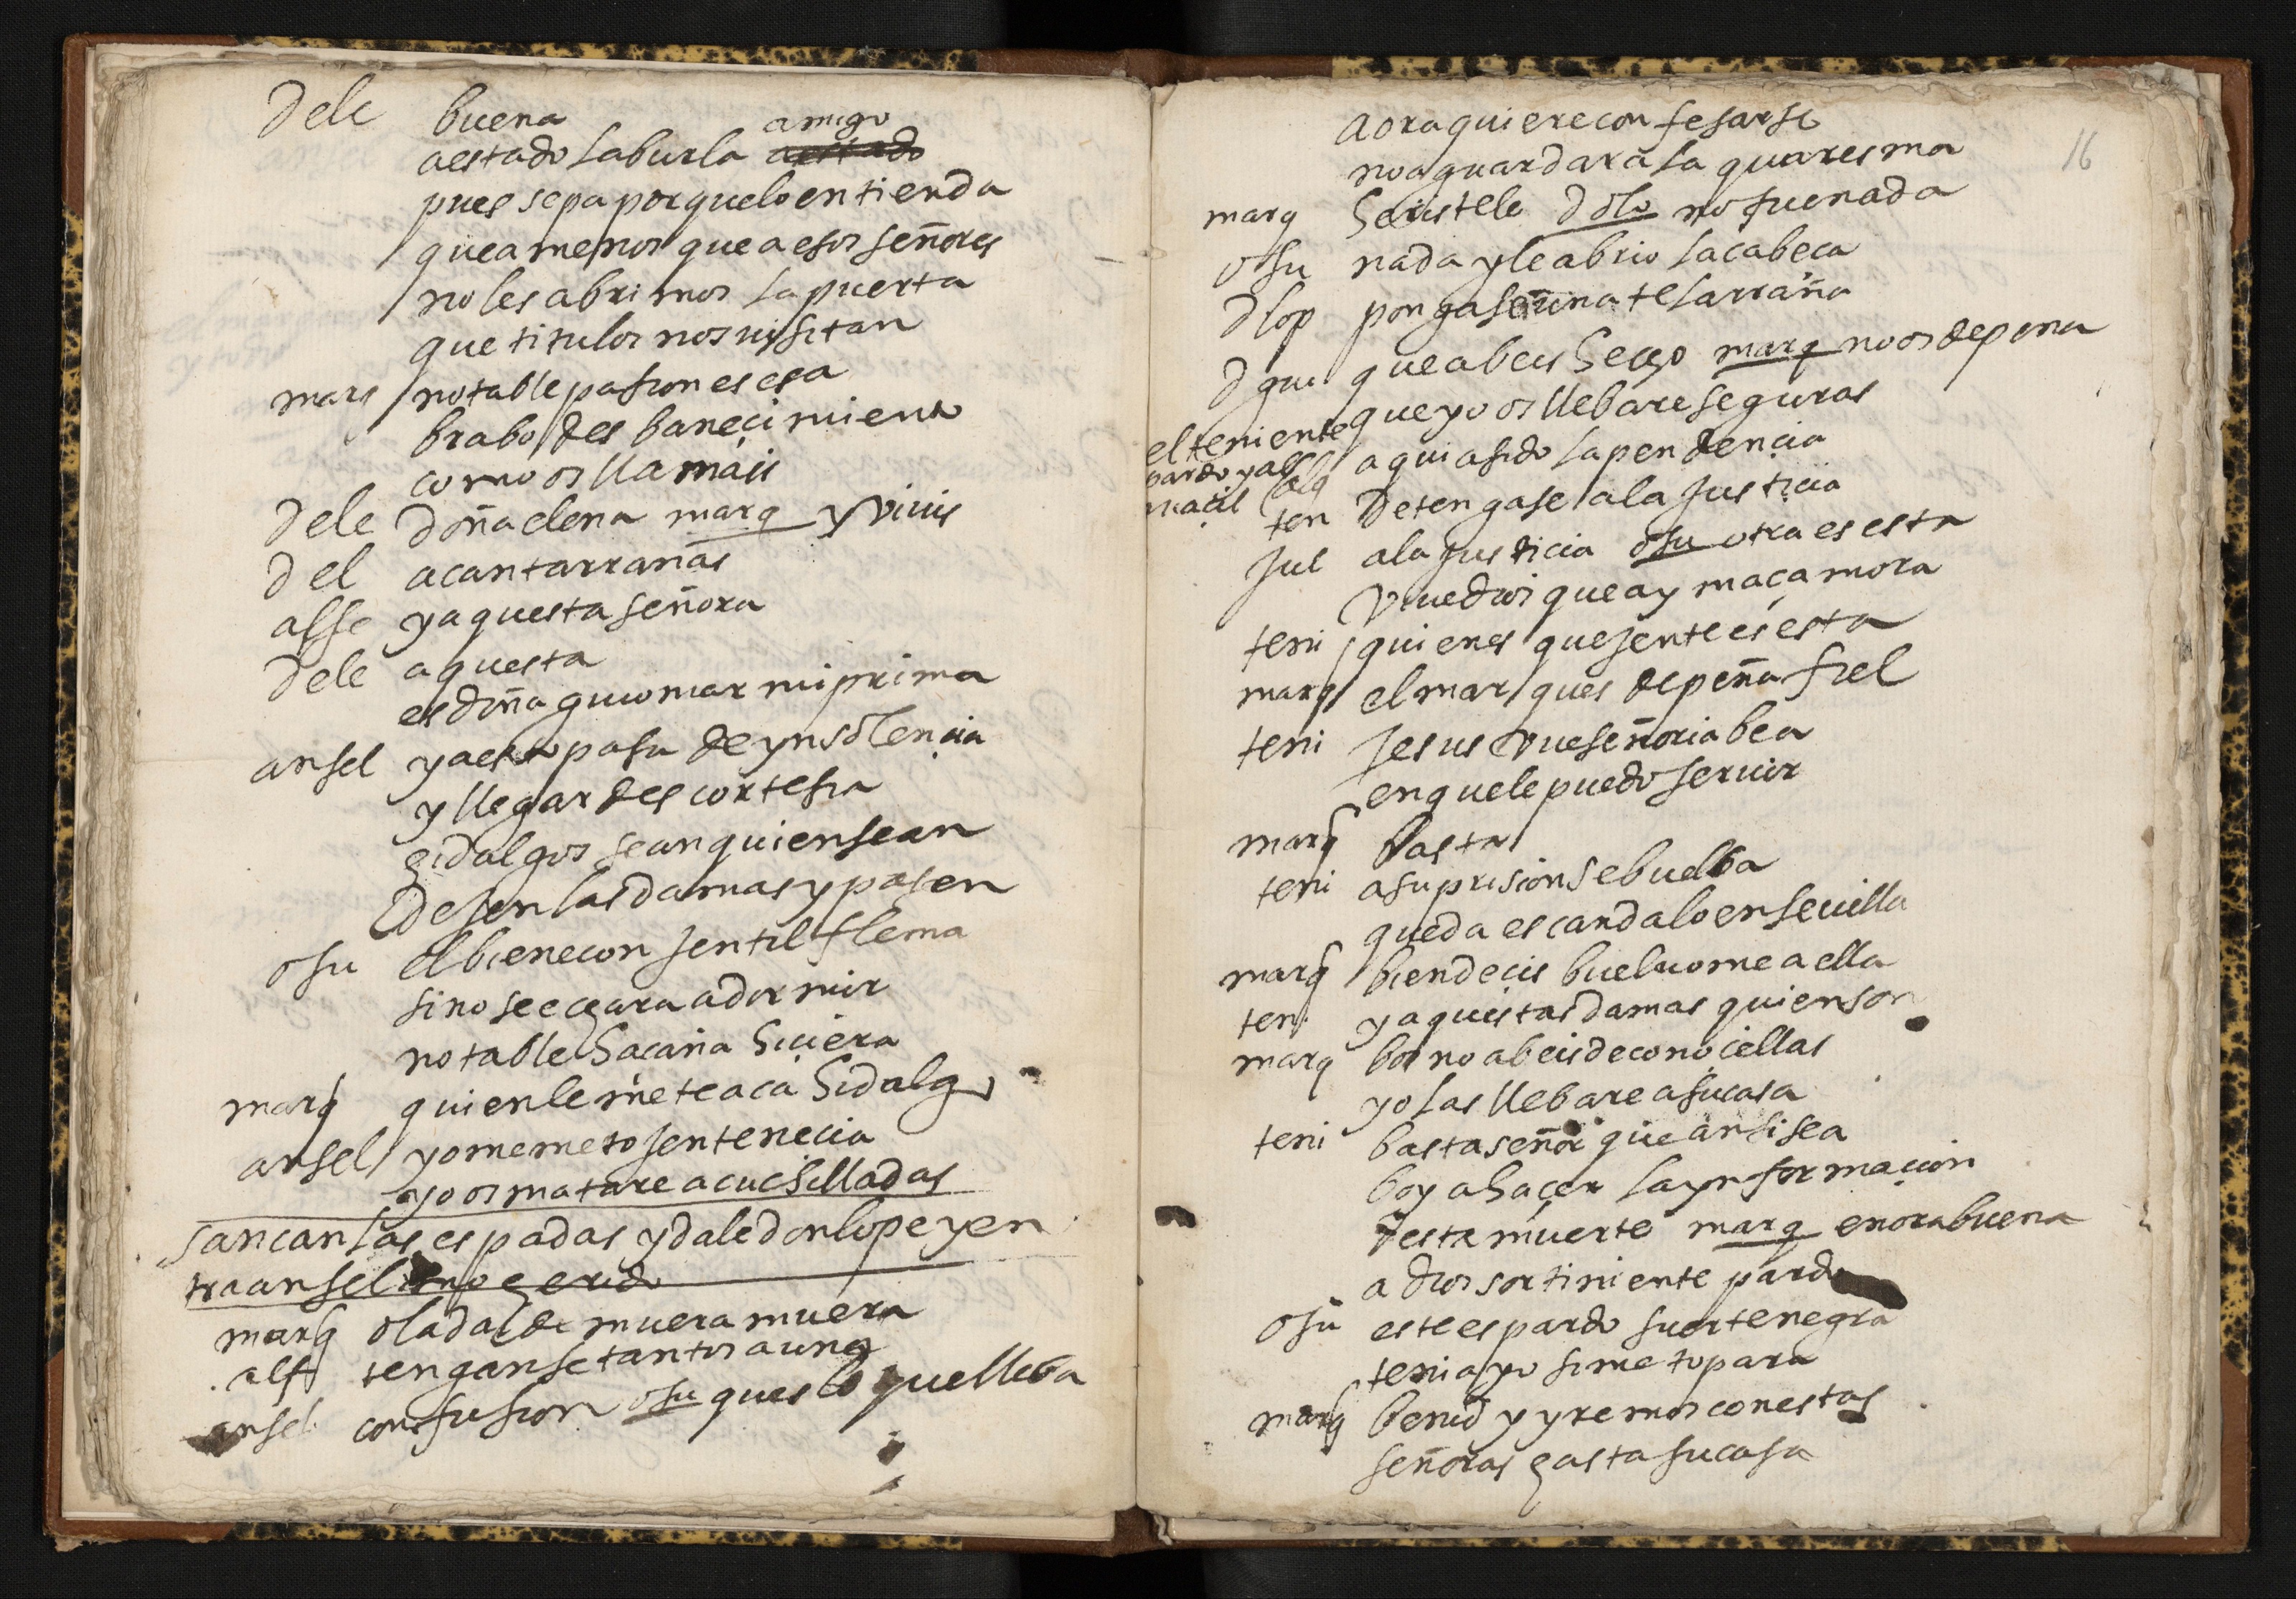 dele buena
aestado la burla aestado amigo
pues sepa porque lo entienda
que a menos que a esos señores
no les abrimos la puerta
que titulos nos uisitan
marq notable pasion es esa
brabo desbaneçimiento
como os llamais
dele doña elena marq y viuis
del a cantarranas
alfe y aquesta señora
dele aquesta
es doña guiomar mi prima
ansel ya esto pasa de ynsolençia
y llega a descortesia
hidalgos sean quien sean
dejen las damas y pasen
osu el biene con jentil flema
si no se echara a dormir
notable haçaña hiçiera
marq quien le mete aca hidalgo
ansel yo me meto jenteneçia
yo os matare a cuchilladas
sacan las espadas y dale don lope y en
tra anselmo herido
marq ola dalde muera muera
alf tenganse tantos a uno
ansel confusion osu ques lo que lleba
16
aora quiere confesarse
no aguardara la quaresma
marq heristele dolo no fue nada
osu nada y le abrio la cabeça
dlop pongase una telarraña
dgui que abeis hecho marq no os de pena
que yo os llebare seguras
el teniente
pardo y alg
uaçil
alg aqui a sido la pendençia
ten detengase a la justiçia
jul a la justiçia osu otra es esta
viue dios que ay maçamora
teni quienes que jente es esta
marq el marques de peñafiel
teni jesus vueseñoria bea
en que le puedo seruir
marq basta
teni a su prision se buelba
que da escandalo en seuilla
marq bien deçis bueluome a ella
ten y aquestas damas quien son
marq bos no abeis de conoçellas
yo las llebare a su casa
teni basta señor que ansi sea
boy a haçer la ynformaçion
desta muerte marq enorabuena
a dios sor tiniente pardo
osu este es pardo suerte negra
tenia yo si me topara
marq benid y yremos con estas
señoras hasta su casa